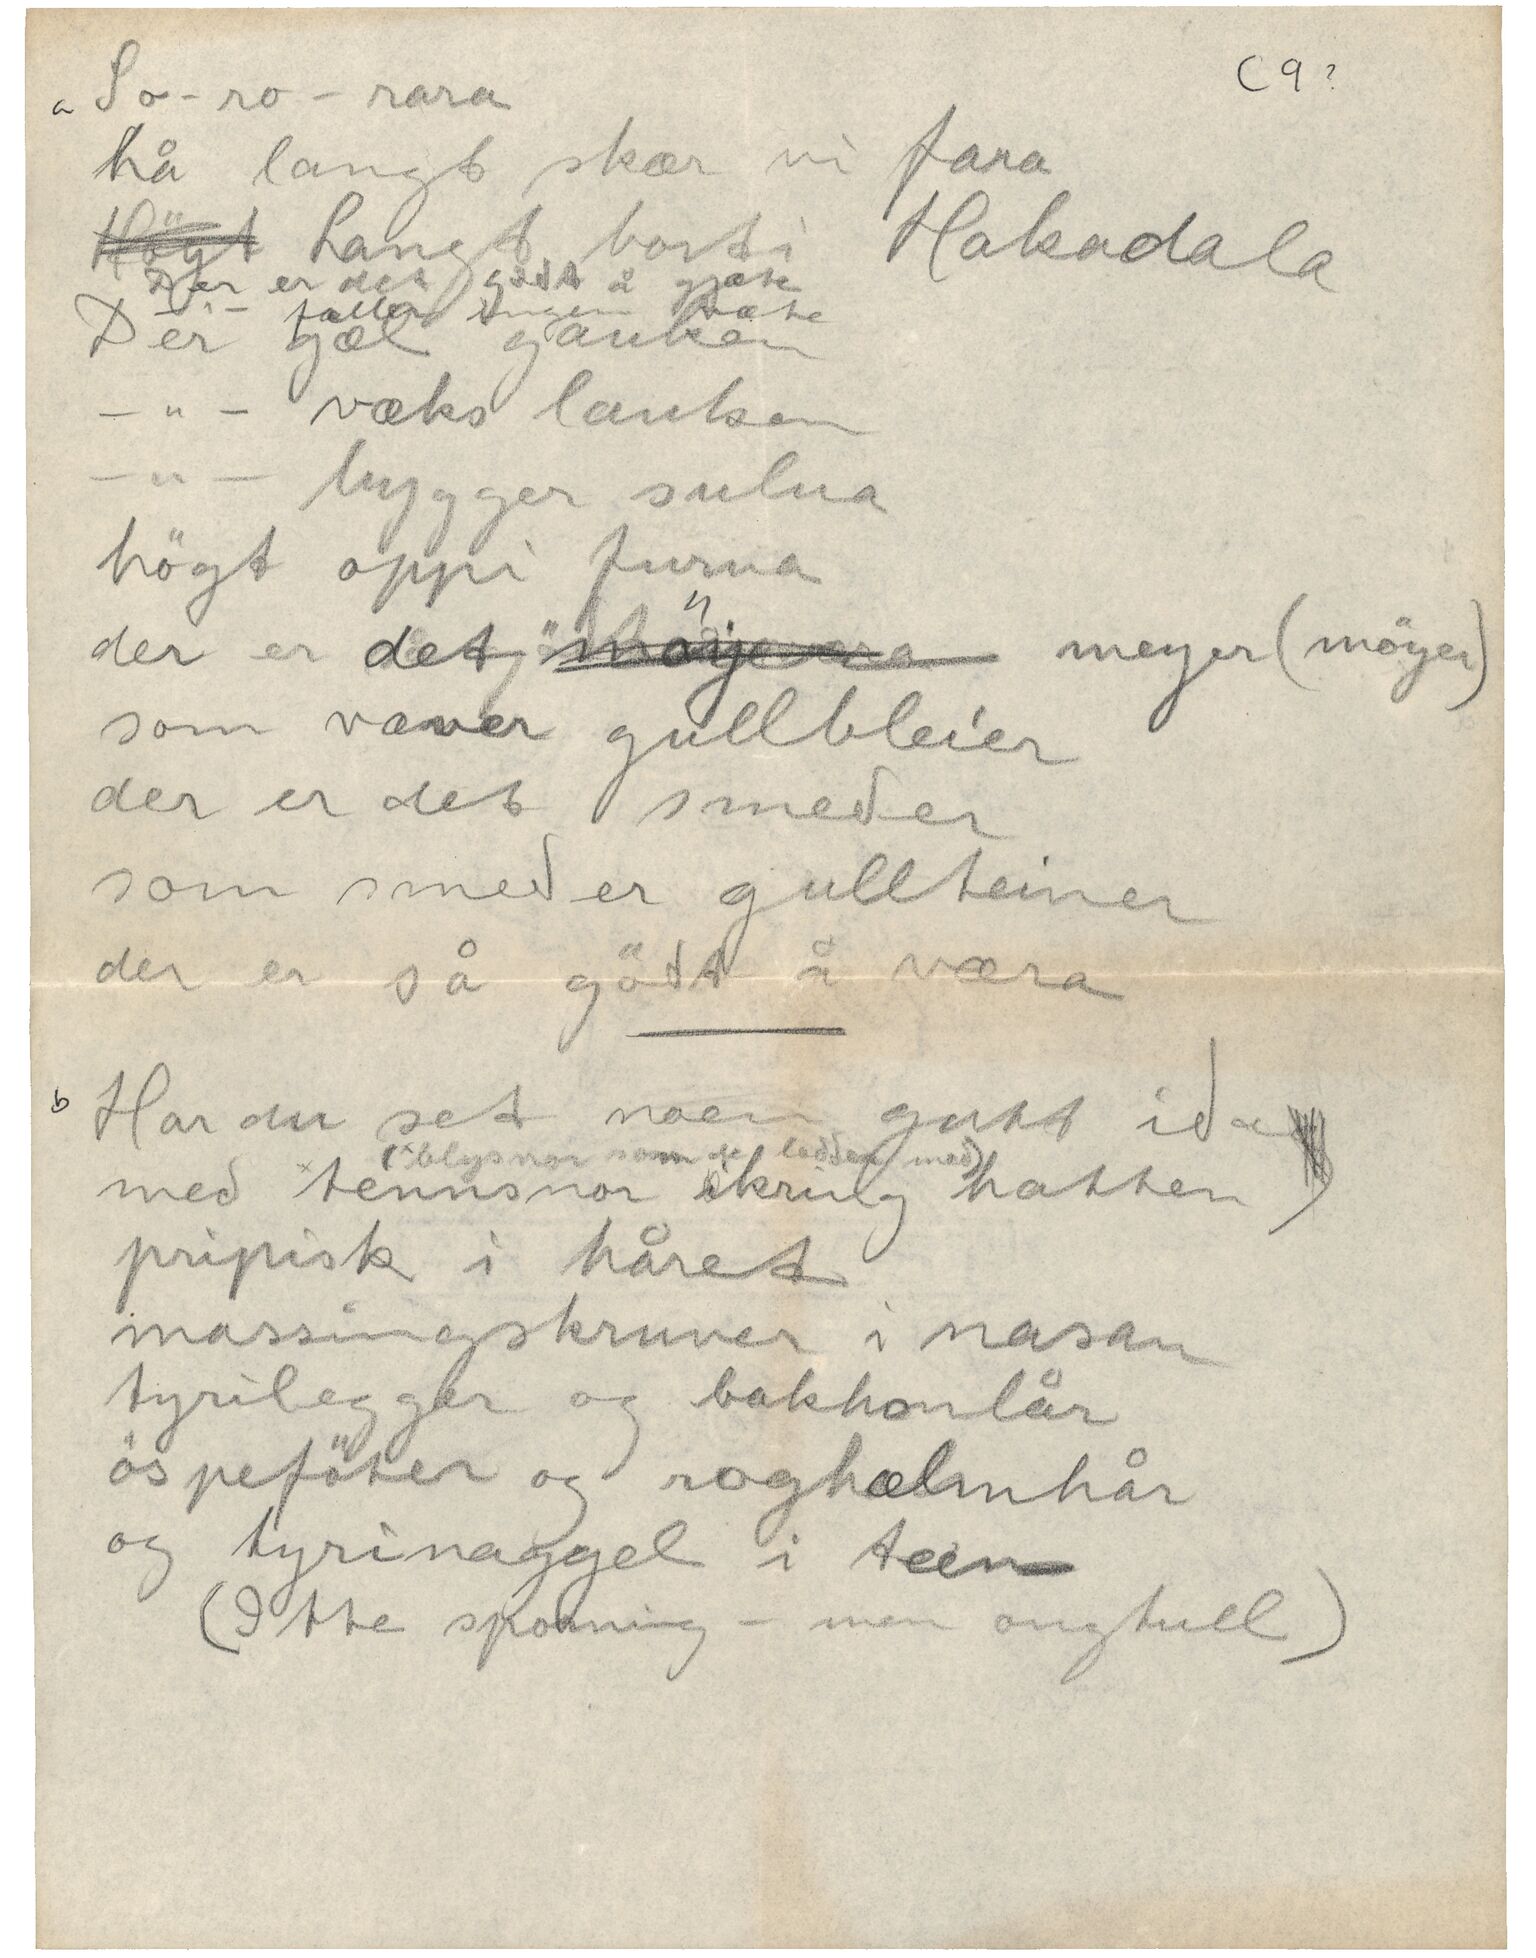 C 9?
a So-ro-rara
hå langt skær vi fara
Högt Langt borti Hakadala
Der er det gödt å gjæte
-"- faller ingen væte
Der gæl gauken
-"- væks lauken
-"- bygger sulua
högt oppi furua
der er det möyer meyer (möyer)
som væver gullbleier
der er det smeder
som smeder gullteiner
der er så gödt å væra
b Har du set noen gutt ida
(×blysnor som de ladder med)
med ×tennsnor ikring hatten
pripisk i håret
massingskruver i nasan
tyrilegger og bakhonlår
öspeföter og roghalmhår
og tyrinaggel i teen
(Itte sponning - men ongtull)